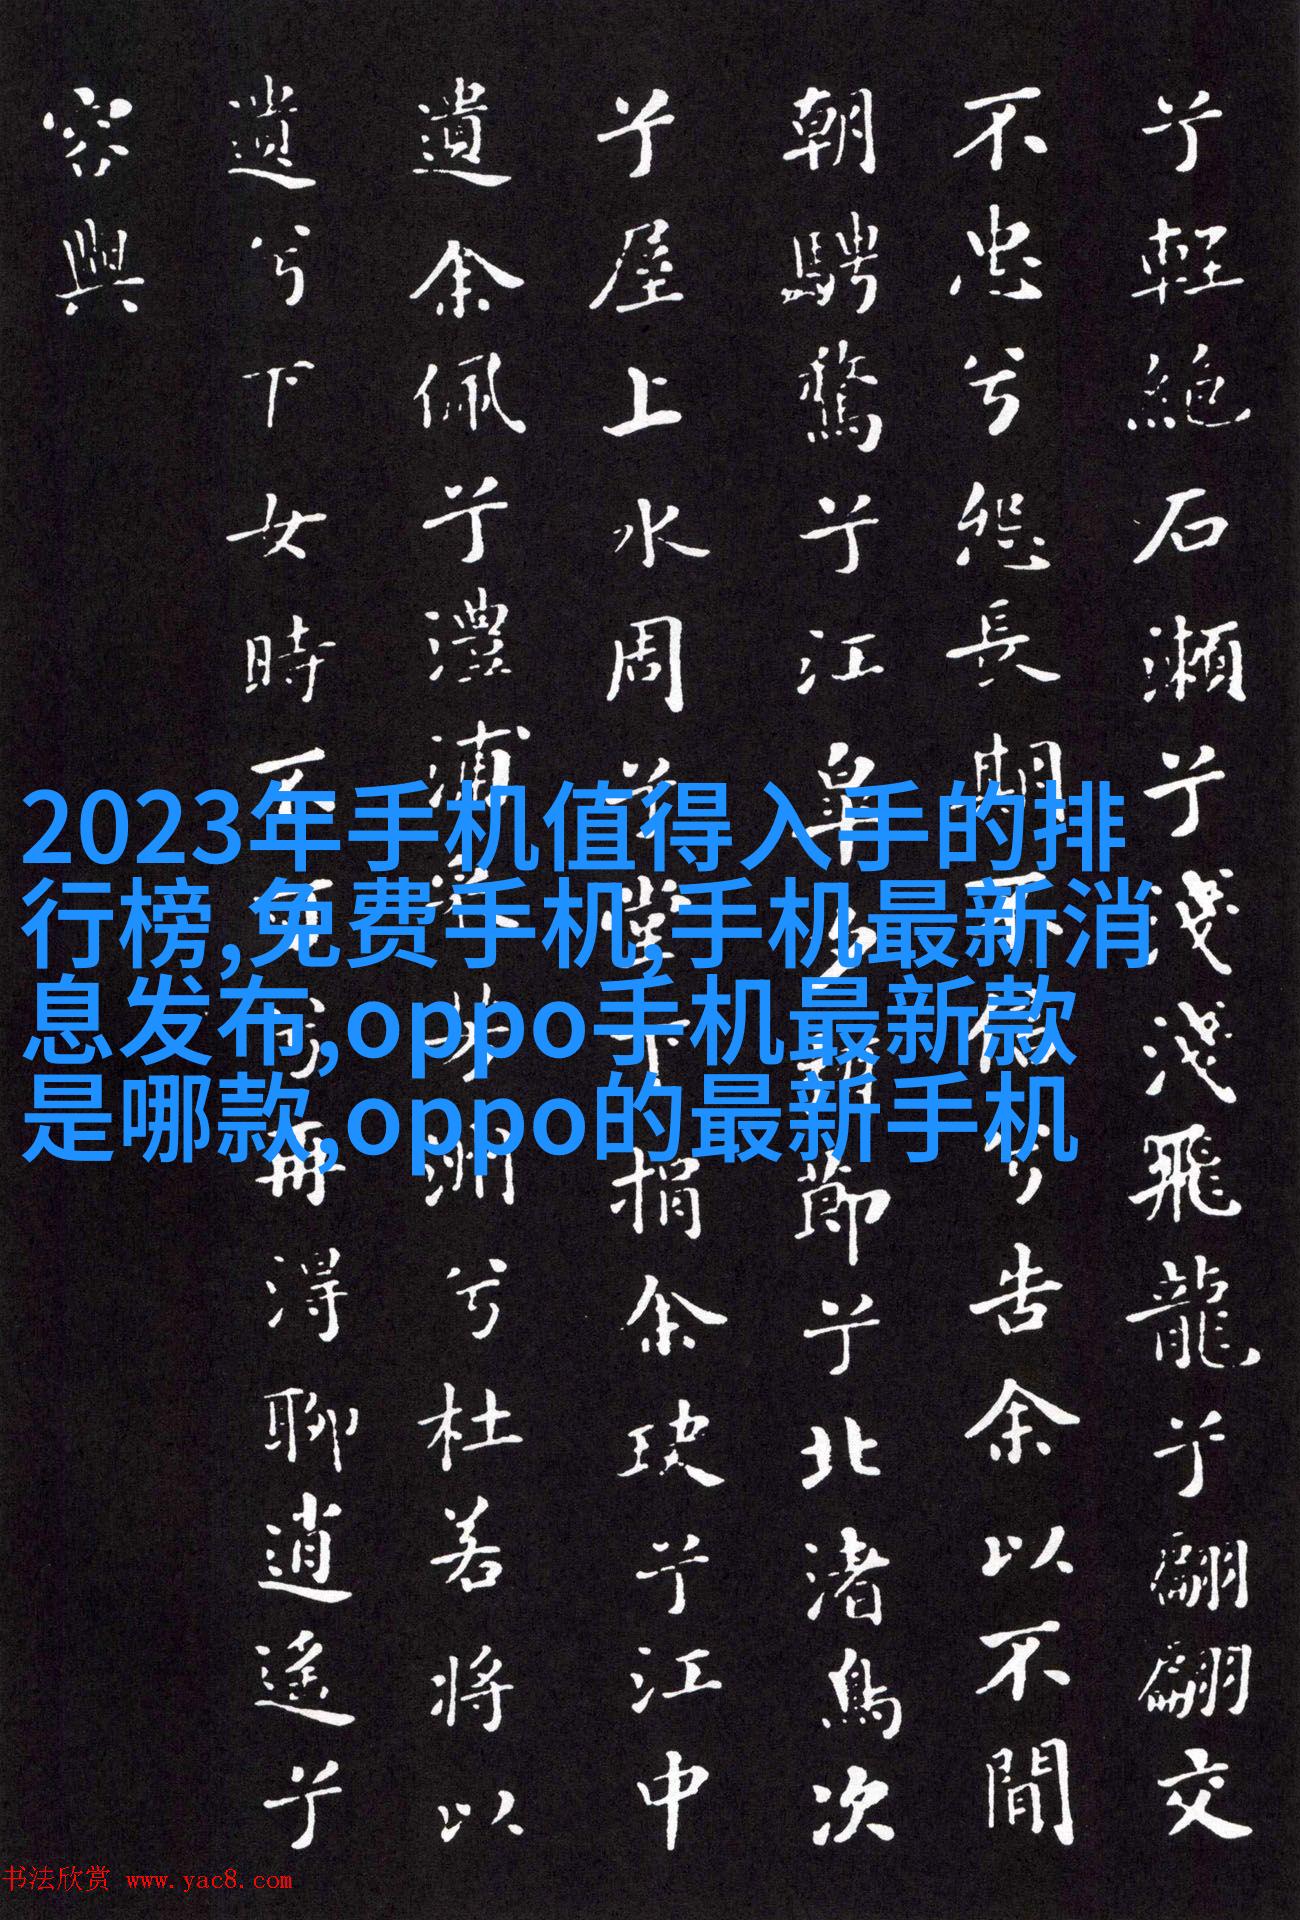 兮輕絕石瀨兮淺淺飛龍兮翩翩交
不忠兮怨長期不信兮告余以不間
朝騁騖兮江皋夕弭節兮北渚鳥次
兮屋上水周兮堂下捐余玦兮江中
遺余佩兮澧浦采芳洲兮杜若將以
遺兮下女時不可兮再得聊逍遙兮
容與
2023年手机值得入手的排
行榜,免费手机,手机最新消
息发布,oppo手机最新款
是哪款,oppo的最新手机
书法欣赏 www.yac8.com